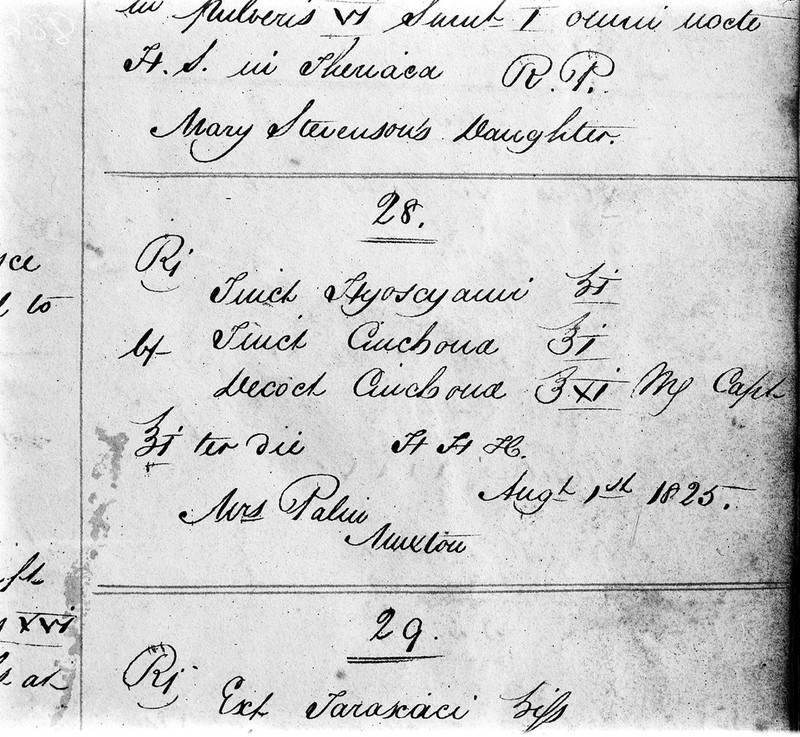 in Pulveris VI Sumt I omni nocte
H. S. in Theriaca R. P.
Mary Stevenson's Daughter.
28.
Rj
Tinct Hyoscyami ʒi
Tinct Cinchona ʒi
Decoct Cinchona ℥XI Capt
ter die H H H.
Augt 1st 1825.
Mrs Palin
Muxton
29.
Rj
Ext Taraxaci
to
XVI
at